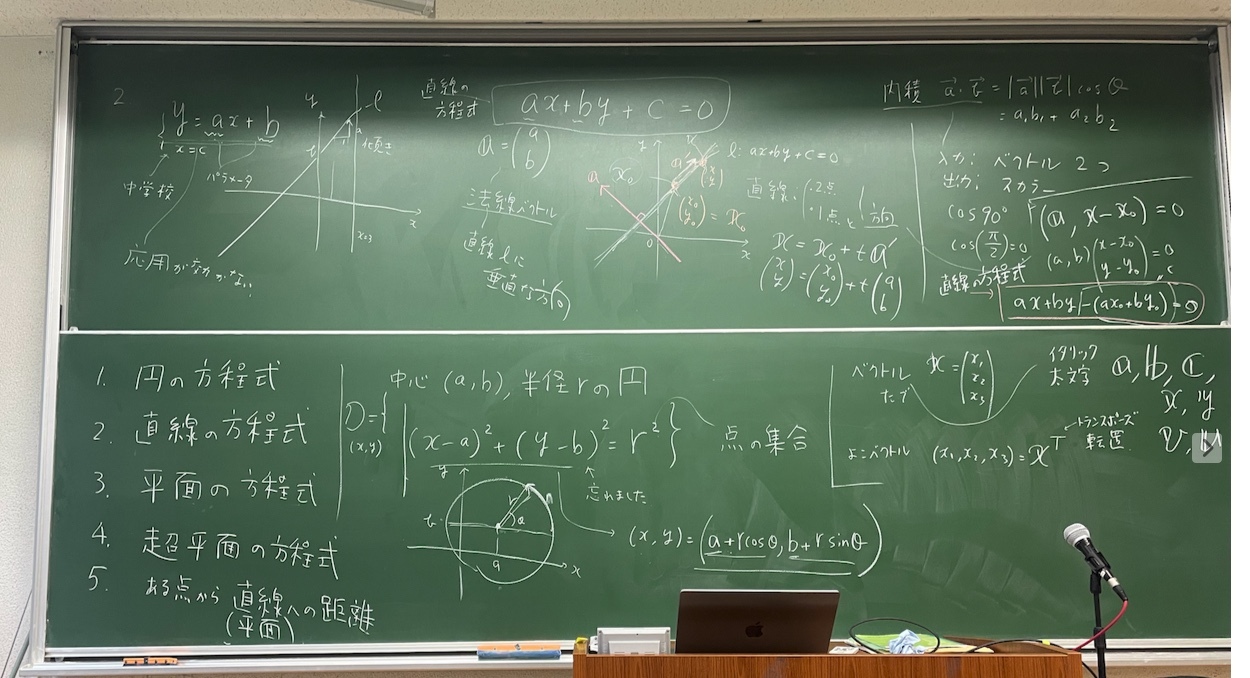 2
y = ax + b
x = c
中学校
パラメータ
応用がなかなか
y
l
傾き
x
x=3
直線の
方程式
ax + by + c = 0
a = (a b)
法線ベクトル
直線 l に
垂直な方向
y
l: ax+by+c=0
a
x₀
(x₀ y₀) = x₀
0
x
直線:
・2点
・1点と方向
x = x₀ + t a
(x y) = (x₀ y₀) + t (a b)
内積 a・b = |a||b| cosθ
= a₁b₁ + a₂b₂
入力: ベクトル 2つ
出力: スカラー
cos 90°
cos(π/2)=0
(a, x − x₀) = 0
(a, b)(x−x₀ y−y₀) = 0
c
直線の方程式
ax+by−(ax₀+by₀)=0
1. 円の方程式
2. 直線の方程式
3. 平面の方程式
4. 超平面の方程式
5. ある点から直線への距離
(平面)
中心 (a,b), 半径 r の円
D = { (x,y) | (x−a)² + (y−b)² = r² }
点の集合
忘れました
y
r
θ
a
x
(x, y) = (a + r cosθ, b + r sinθ)
ベクトル
たて
x = (x₁ x₂ x₃)
イタリック
太文字
a, b, c,
x, y
よこベクトル (x₁, x₂, x₃) = xᵀ
トランスポーズ
転置